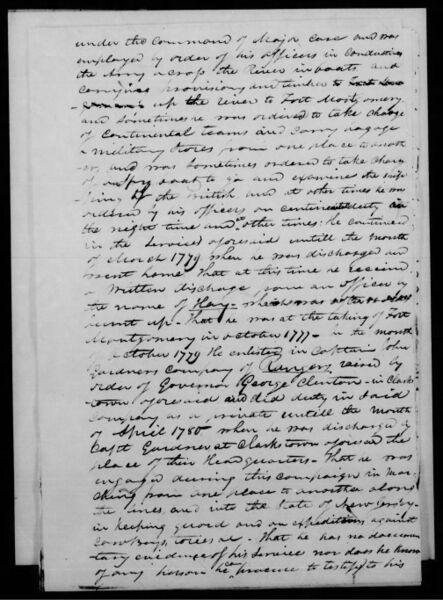 under the Command of Major Case and was
employed by order of his officers in Conducting
the Army across the River in boats and
carrying provisions and timber to
up the river to Fort Montgomery
and sometimes he was ordered to take charge
of Continental teams and carry bagage
& military stores from one place to anoth
er, and was sometimes ordered to take charge
of a boat to go and examine the ship
ping of the British and at other times he was
ordered by his officers on centinel duty in
the night time and other times: he continued
in the service aforesaid untill the month
of March 1779 when he was discharged and
went home that at this time he received
a written discharge from an officer by
the name of Hay - which was
up - That he was at the taking of Fort
Montgomery in October 1777 - in the month
of October 1779 He enlisted in Captain John
Gardners Company of Rangers raised by
order of Governor George Clinton - in Clarks
town aforesaid and did duty in said
company as a private untill the month
of April 1780 when he was discharged by
Capt Gardner at Clarkstown aforesaid the
place of their Head quarters - That he was
engaged during this campaign in mar
ching from one place to another along
the lines and into the State of New Jersey
in keeping guard and on expeditions against
Cow boys, tories &c - That he has no documen
tary evidence of his service nor does he know
of any person he can procure to testify to his